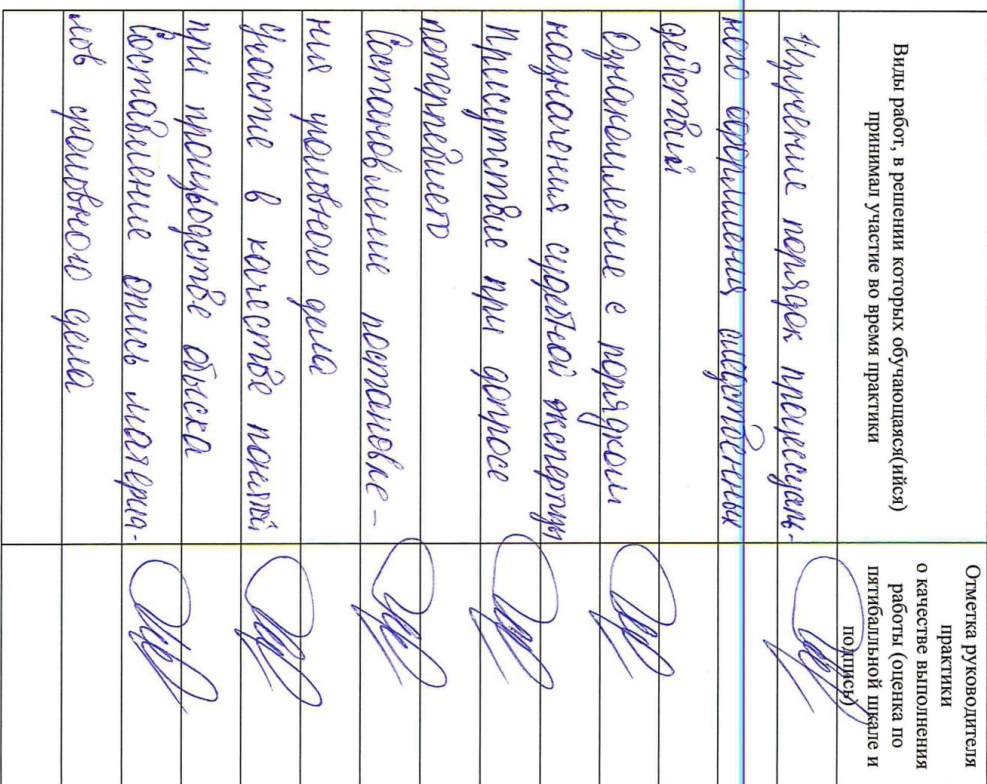 Виды работ, в решении которых обучающаяся(ийся)
принимал участие во время практики
Отметка руководителя
практики
о качестве выполнения
работы (оценка по
пятибалльной шкале и
подпись)
Изучение порядок процессуаль-
ного оформления следственных
действий
Ознакомление с порядком
назначения судебной экспертизы
Присутствие при допросе
потерпевшего
Состановление постановле-
ния уголовного дела
Участие в качестве понятой
при производстве обыска
Составление опись материа-
лов уголовного дела